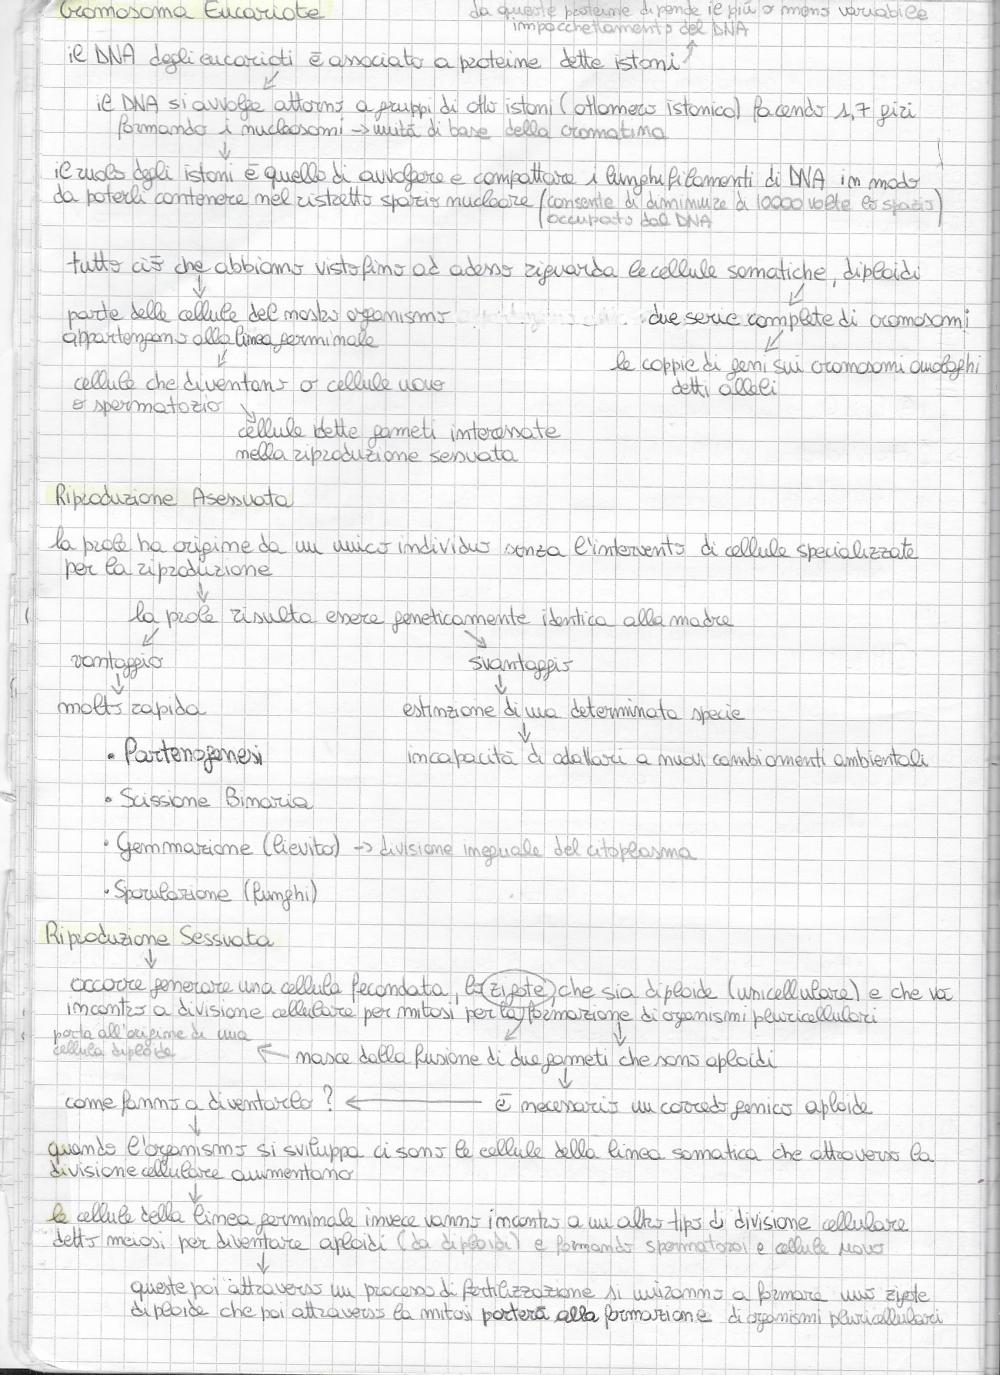 Cromosoma Eucariote
da queste proteine dipende il più o meno variabile
impacchettamento del DNA
il DNA degli eucarioti è associato a proteine dette istoni
il DNA si avvolge attorno a gruppi di otto istoni (ottomero istonico) facendo 1,7 giri
formando i nucleosomi → unità di base della cromatina
il ruolo degli istoni è quello di avvolgere e compattare i lunghi filamenti di DNA in modo
da poterli contenere nel ristretto spazio nucleare (consente di diminuire di 10000 volte lo spazio
occupato dal DNA)
tutto ciò che abbiamo visto fino ad adesso riguarda le cellule somatiche, diploidi
parte delle cellule del nostro organismo
appartengono alla linea germinale
due serie complete di cromosomi
le coppie di geni sui cromosomi omologhi
detti alleli
cellule che diventano o cellule uovo
o spermatozio
cellule dette gameti interessate
nella riproduzione sessuata
Riproduzione Asessuata
la prole ha origine da un unico individuo senza l'intervento di cellule specializzate
per la riproduzione
la prole risulta essere geneticamente identica alla madre
vantaggio
svantaggio
molto rapida
estinzione di una determinata specie
• Partenogenesi
incapacità di adattarsi a nuovi cambiamenti ambientali
• Scissione Binaria
• Gemmazione (lievito) → divisione ineguale del citoplasma
• Sporulazione (funghi)
Riproduzione Sessuata
occorre generare una cellula fecondata, lo zigote, che sia diploide (unicellulare) e che va
incontro a divisione cellulare per mitosi per la formazione di organismi pluricellulari
porta all'origine di una
cellula diploide
nasce dalla fusione di due gameti che sono aploidi
come fanno a diventarlo ?
è necessario un corredo genico aploide
quando l'organismo si sviluppa ci sono le cellule della linea somatica che attraverso la
divisione cellulare aumentano
le cellule della linea germinale invece vanno incontro a un altro tipo di divisione cellulare
detto meiosi per diventare aploidi (da diploidi) e formando spermatozoi e cellule uovo
queste poi attraverso un processo di fertilizzazione si uniranno a formare uno zigote
diploide che poi attraverso la mitosi porterà alla formazione di organismi pluricellulari